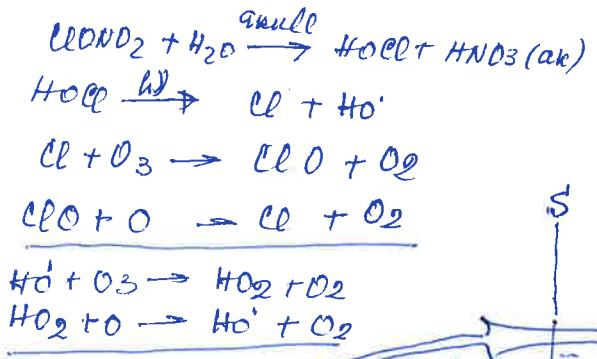 ClONO2 + H2O → HOCl + HNO3 (ак)
HOCl hν → Cl + HO˙
Cl + O3 → ClO + O2
ClO + O → Cl + O2
HO˙ + O3 → HO2 + O2
HO2 + O → HO˙ + O2
S